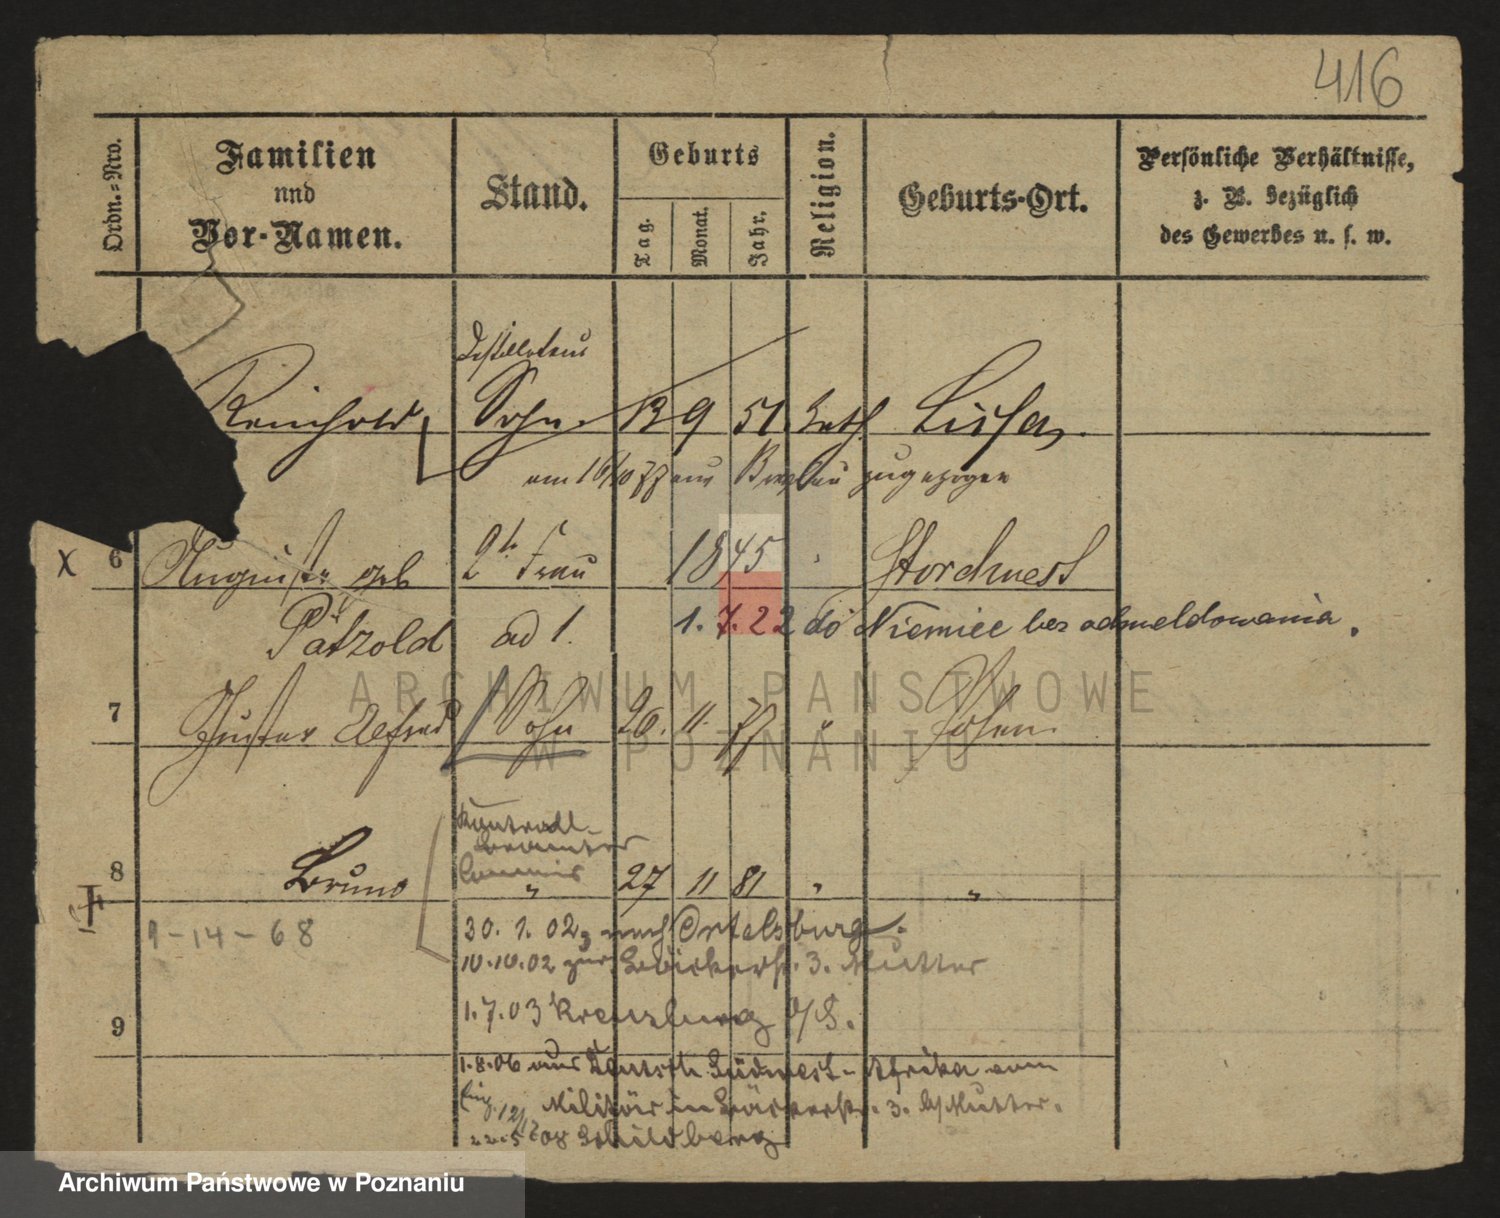 416
Ordn.=Nro.
Familien
und
Vor-Namen.
Stand.
Geburts
Tag.
Monat.
Jahr.
Religion.
Geburts-Ort.
Persönliche Verhältnisse,
z. B. bezüglich
des Gewerbes u. s. w.
Destillateur
Reinhold Sohn 9 51 kath Lissa
am 16/10 77 aus Breslau zugezogen
x 6 Auguste geb 2te Frau 1845 " Storchnest
Pätzold ad 1. 1.7.22 do Niemiec bez odmeldowania.
7 Gustav Alfred Sohn 26. 11. 77 " Posen
ARCHIWUM PAŃSTWOWE
W POZNANIU
Kontroll-
beamter
Commis
8 Bruno " 27 11 81 " "
9-14-68
30. 1. 02 nach Ortelsburg.
10.10.02 zur Bäckerstr. 3. Mutter
1.7.03 Kreuzburg O/S.
9
1.8.06 aus Deutsch Südwest-Afrika vom
Militär in Bäckerstr. 3. b/Mutter.
08 Schildberg
Archiwum Państwowe w Poznaniu